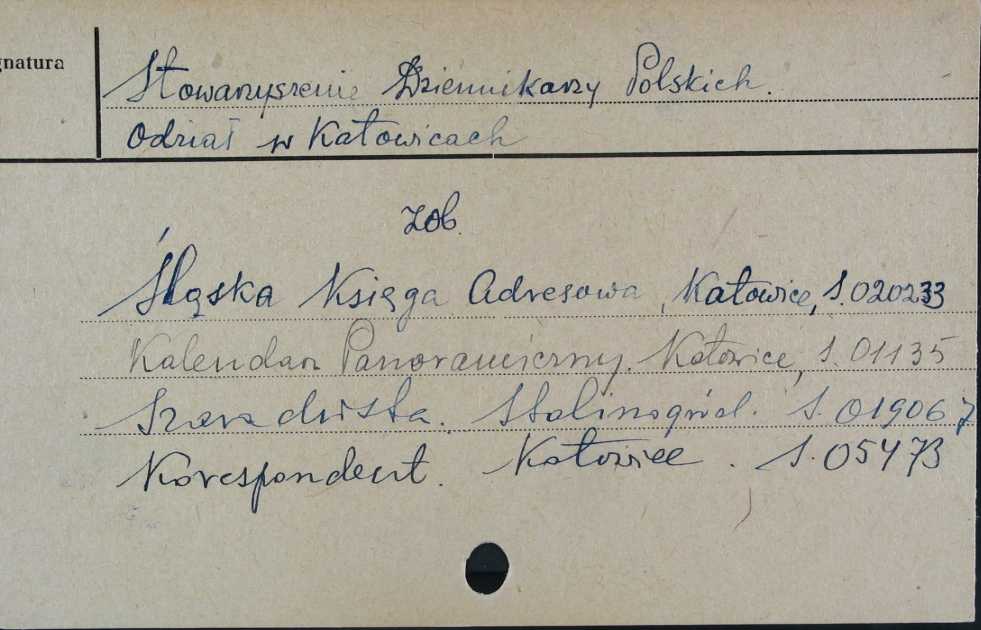 gnatura
Stowarzyszenie Dziennikarzy Polskich.
Odział w Katowicach
zob.
Śląska Księga Adresowa, Katowice, S.020233
Kalendarz Panoramiczny. Katowice, S.01135
Szaradzista. Stalinogród. S.019067
Korespondent. Katowice. S.05473